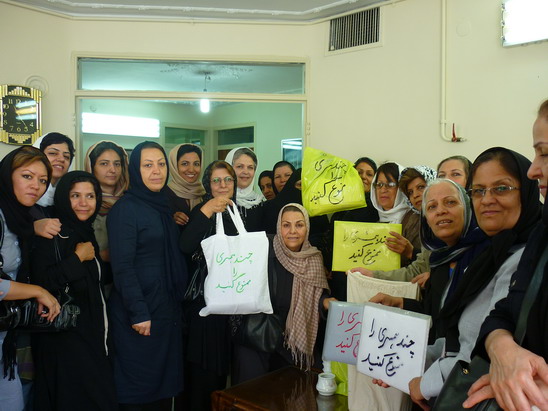 چند همسری
را
ممنوع کنید
چند همسری
را
ممنوع کنید
چند همسری را
ممنوع کنید
چند همسری را
ممنوع کنید
چند همسری را
ممنوع کنید